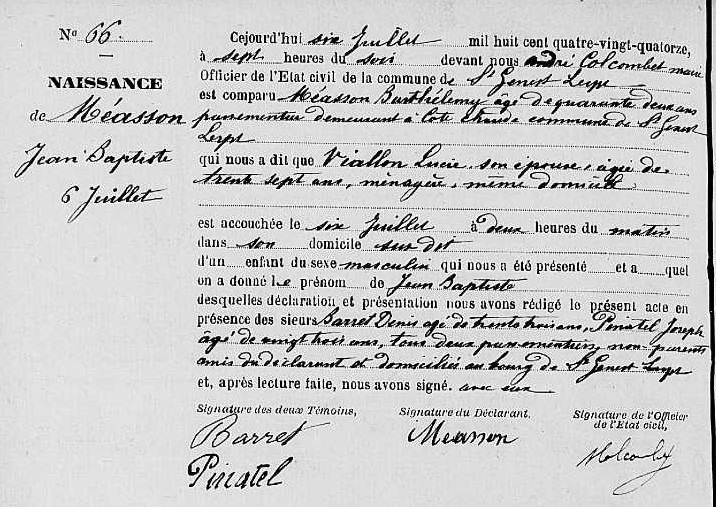 N° 66
NAISSANCE
de Méasson
Jean Baptiste
6 Juillet
Cejourd'hui six Juillet mil huit cent quatre-vingt-quatorze,
à sept heures du soir devant nous André Colcombet maire
Officier de l'Etat civil de la commune de St Genest Lerpt
est comparu Méasson Barthélemy agé de quarante deux ans
passementier demeurant à Côte Chaude commune de St Genest
Lerpt
qui nous a dit que Viallon Lucie, son épouse, agée de
trente sept ans, ménagère, même domicile
est accouchée le six Juillet à deux heures du matin
dans son domicile sus dit
d'un enfant du sexe masculin qui nous a été présenté et a quel
on a donné le prénom de Jean Baptiste
desquelles déclaration et présentation nous avons rédigé le présent acte en
présence des sieurs Barret Denis agé de trente trois ans, Pinatel Joseph
âgé de vingt trois ans, tous deux passementiers, non parents
amis du déclarant et domiciliés au bourg de St Genest Lerpt
et, après lecture faite, nous avons signé. avec eux
Signature des deux Témoins,
Signature du Déclarant.
Signature de l'Officier
de l'Etat civil,
Barret
Measson
Pinatel